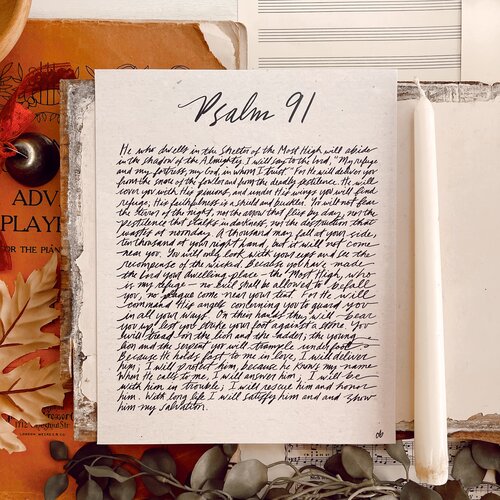 Psalm 91
He who dwells in the Shelter of the Most High will abide
in the shadow of the Almighty. I will say to the Lord, "My refuge
and my fortress, my God, in whom I trust." For He will deliver you
from the snare of the fowler and from the deadly pestilence. He will
cover you with His pinions, and under His wings you will find
refuge; His faithfulness is a shield and buckler. You will not fear
the terror of the night, nor the arrow that flies by day, nor the
pestilence that stalks in darkness, nor the destruction that
wastes at noonday. A thousand may fall at your side,
ten thousand at your right hand, but it will not come
near you. You will only look with your eyes and see the
recompense of the wicked. Because you have made
the Lord your dwelling place - the Most High, who
is my refuge - no evil shall be allowed to befall
you, no plague come near your tent. For He will
command His angels concerning you to guard you
in all your ways. On their hands they will bear
you up, lest you strike your foot against a stone. You
will tread on the lion and the adder; the young
lion and the serpent you will trample underfoot.
Because He holds fast to me in love, I will deliver
him; I will protect him, because he knows my name
When he calls to me, I will answer him; I will be
with him in trouble; I will rescue him and honor
him. With long life I will satisfy him and and show
him my salvation.
ADV
PLAYE
FOR THE PIAN
LONDON